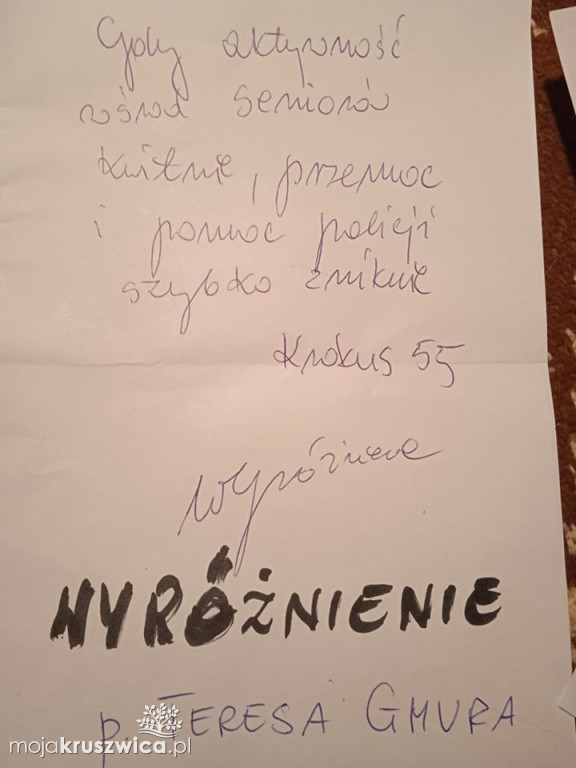 Gdy aktywność
wśród seniorów
kwitnie, przemoc
i pomoc policji
szybko zniknie
Krokus 55
Wyróżnienie
WYRÓŻNIENIE
p. TERESA GMURA
mojakruszwica.pl